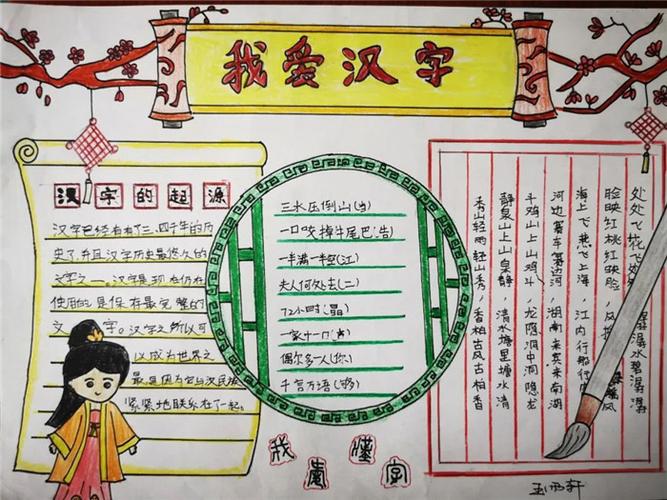 我爱汉字
汉字的起源
汉字已经有有了三、四千年的历
史了,并且汉字历史最悠久的
文字之一。汉字是现在仍在
使用的,是保存最完整的
文字。汉字之所以可
以成为世界之
最是因为它与汉民族
紧紧地联系在了一起。
三水压倒山(当)
一口咬掉牛尾巴(告)
一半满一半空(江)
夫人何处去(二)
72小时(晶)
一家十一口
偶尔多人(你)
千言万语(够)
处处飞花飞处 潺水碧潺潺
脸映红桃红映脸,风 风
海上飞燕飞上海,江内行船行
河边赛车赛边河,湖南来宾来南湖
斗鸡山上山鸡斗,龙隐洞中洞隐龙
静泉山上山泉静,清水塘里塘水清
秀山轻雨轻山秀,香柏古风古柏香
我 懂
字